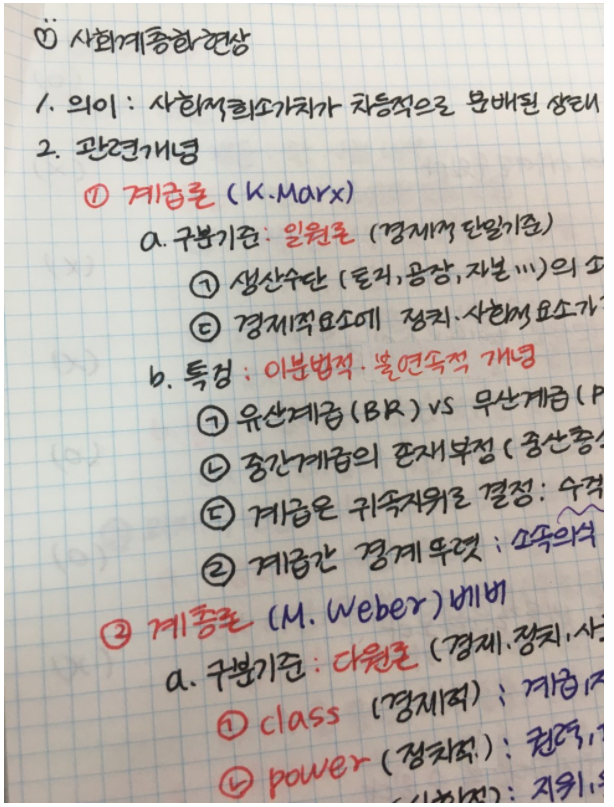 ① 사회계층화현상
1. 의이 : 사회적희소가치가 차등적으로 분배된 상태
2. 관련개념
① 계급론 (K.Marx)
a. 구분기준: 일원론 (경제적 단일기준)
㉠ 생산수단 (토지, 공장, 자본…)의 소
㉢ 경제적요소에 정치·사회적 요소가
b. 특징 : 이분법적·불연속적 개념
㉠ 유산계급 (BR) VS 무산계급 (P
㉡ 중간계급의 존재부정 ( 중산층
㉢ 계급은 귀속지위로 결정: 수직
② 계급간 경계 뚜렷 : 소속의식
② 계층론 (M. Weber) 베버
a. 구분기준 : 다원론 (경제, 정치, 사
㉠ class (경제적) : 계급,
㉡ power (정치적) : 권력,
: 지위,